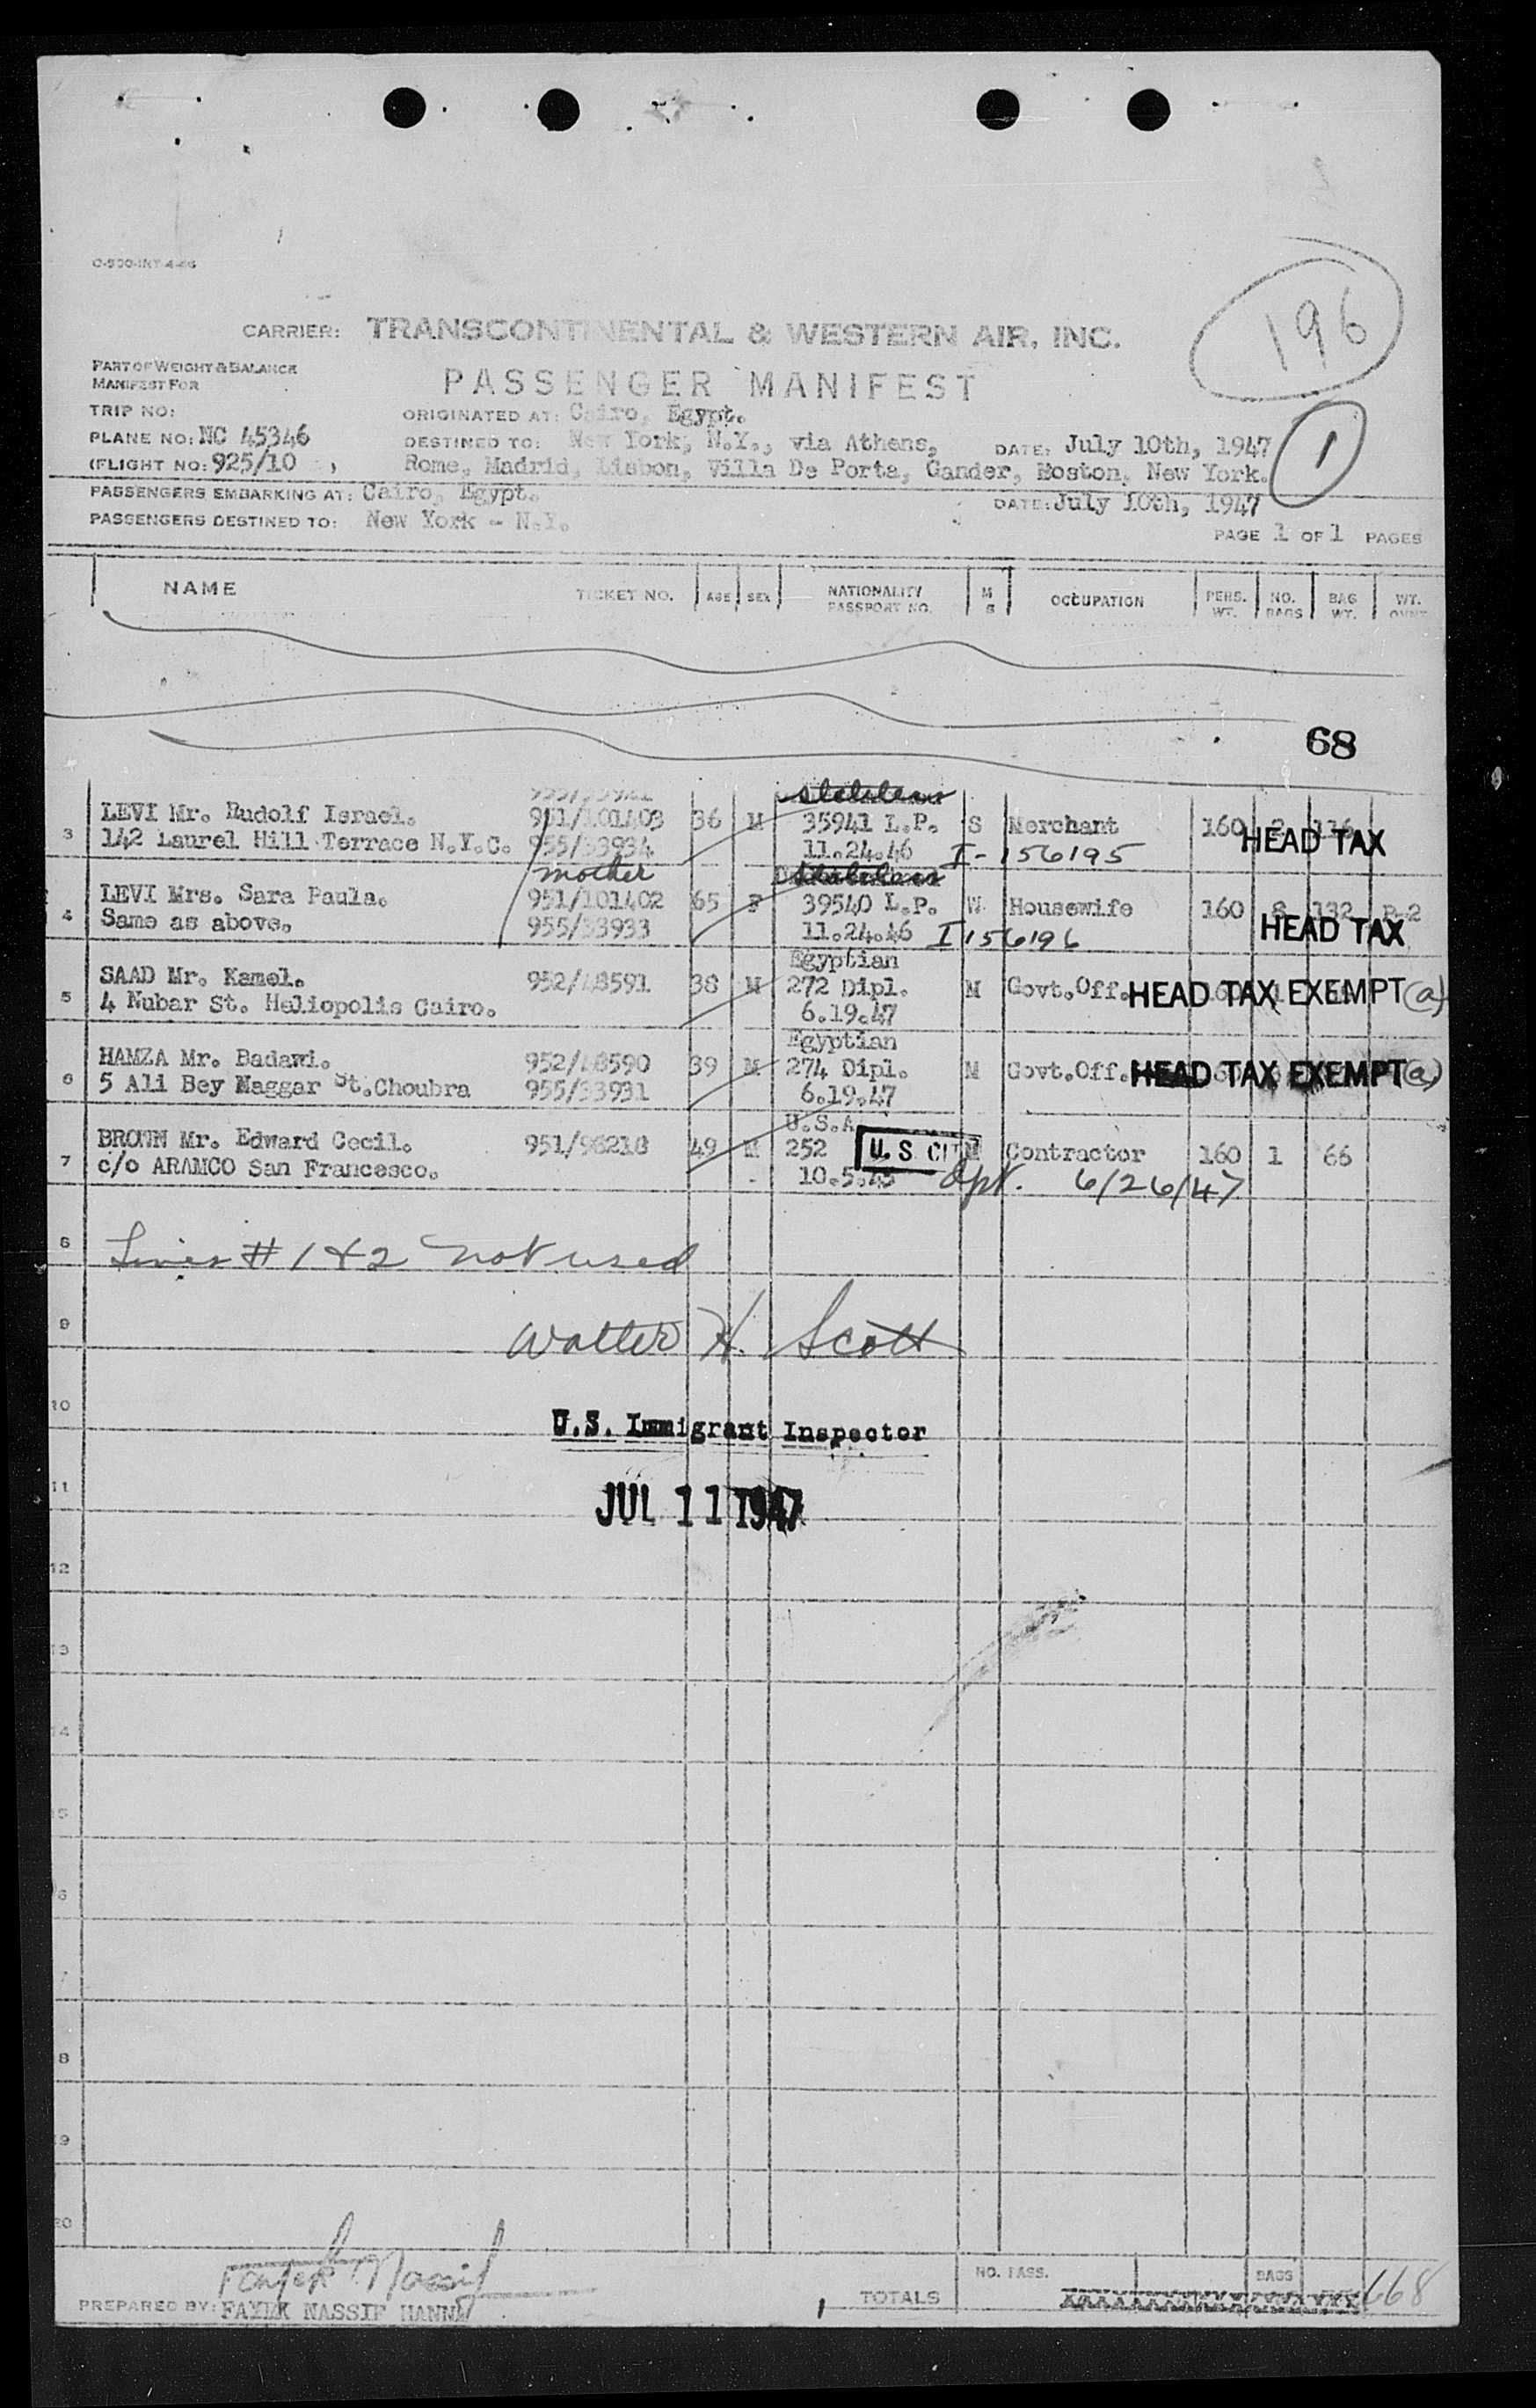 C-900-INT-4-46
196
CARRIER: TRANSCONTINENTAL & WESTERN AIR, INC.
PART OF WEIGHT & BALANCE
MANIFEST FOR
PASSENGER MANIFEST
TRIP NO: ORIGINATED AT: Cairo, Egypt.
PLANE NO: NC 45346 DESTINED TO: New York, N.Y., via Athens, DATE: July 10th, 1947 1
(FLIGHT NO: 925/10 ) Rome, Madrid, Lisbon, Villa De Porta, Gander, Boston, New York.
PASSENGERS EMBARKING AT: Cairo, Egypt. DATE: July 10th, 1947
PASSENGERS DESTINED TO: New York - N.Y.
PAGE 1 OF 1 PAGES
NAME TICKET NO. AGE SEX NATIONALITY PASSPORT NO. M S OCCUPATION PERS. WT. NO. BAGS BAG WT. WT. OVNT
68
stateless
3 LEVI Mr. Rudolf Israel. 951/101403 36 M 35941 L.P. S Merchant 160 2 116 HEAD TAX
142 Laurel Hill Terrace N.Y.C. 955/33934 11.24.46 I-156195
mother stateless
4 LEVI Mrs. Sara Paula. 951/101402 65 F 39540 L.P. W Housewife 160 8 132 P.2
Same as above. 955/33933 11.24.46 I 156196 HEAD TAX
Egyptian
5 SAAD Mr. Kamel. 952/48591 38 M 272 Dipl. M Govt.Off. HEAD TAX EXEMPT (a)
4 Nubar St. Heliopolis Cairo. 6.19.47
Egyptian
6 HAMZA Mr. Badawi. 952/48590 39 M 274 Dipl. M Govt.Off. HEAD TAX EXEMPT (a)
5 Ali Bey Naggar St.Choubra 955/33931 6.19.47
U.S.A.
7 BROWN Mr. Edward Cecil. 951/98218 49 M 252 U.S CIT M Contractor 160 1 66
c/o ARAMCO San Francesco. 10.5.45 Dpt. 6/26/47
8 Lines # 1 & 2 not used
9 Walter H. Scott
10 U.S. Immigrant Inspector
11 JUL 11 1947
12
13
14
15
16
17
18
19
20
Fayek Nassif
PREPARED BY: FAYEK NASSIF HANNA TOTALS NO. PASS. BAGS 668